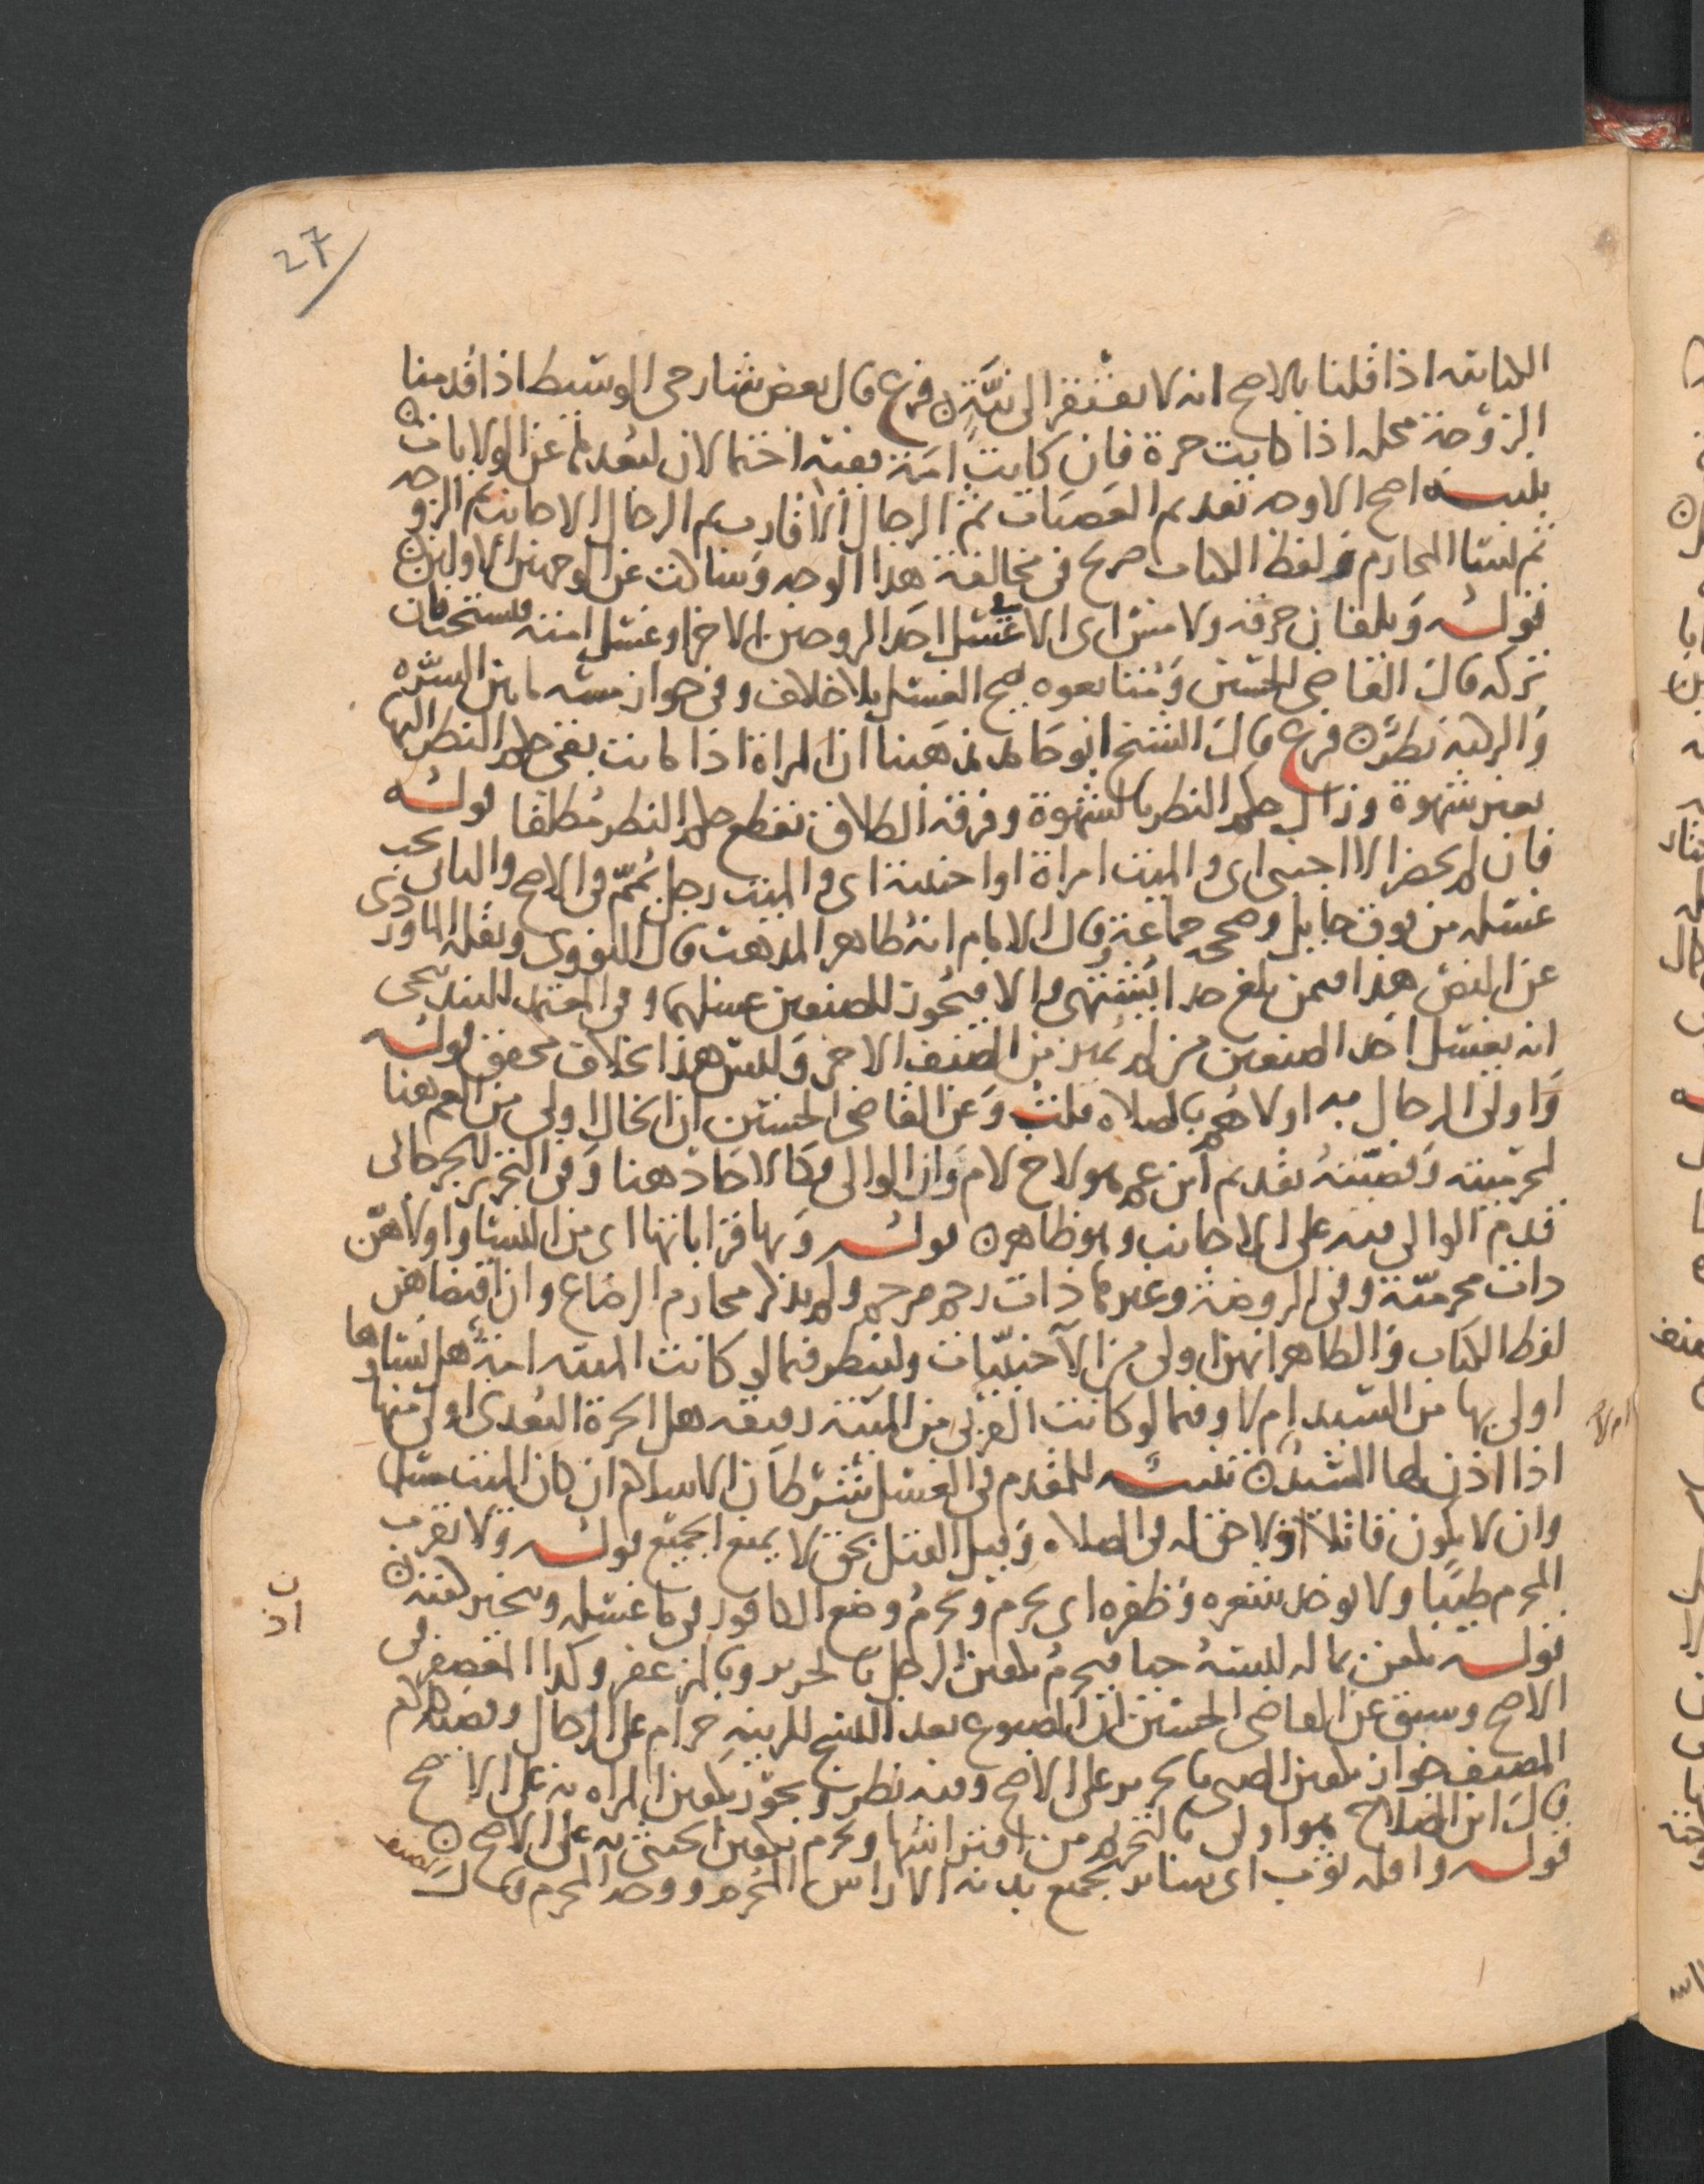 27
الكتابية اذا قلنا بالاصح انه لا يفتقر الى نيّة ن فرع قال بعض شارحي الوسيط اذا قدمنا
الزوجة محله اذا كانت حرة فان كانت امة ففيه احتمالان لبعدها عن الولايات ن
تنبيه اصح الاوجه تقديم العصبات ثم الرجال الاقارب ثم الرجال الاجانب ثم الزوجه
ثم نسا المحارم ولفظ الكتاب صريح في مخالفة هذا الوجه وساكت عن الوجهين الاولين ن
قوله ويلفان خرقه ولا مس اى الاغسل احد الزوجين الاخر او غسل امته مستحبان
تركه قال القاضي الحسين ومتابعوه يصح الغسل بلا خلاف وفي جواز مسه ما بين السره
والركبه نظر ن فرع قال الشيخ ابو حامد مذهبنا ان المراة اذا ماتت بقي حكم النظر اليها
بغير شهوة وزال حكم النظر بالشهوة وفرقة الطلاق تقطع حكم النظر مطلقا قوله
فان لم يحضر الا اجنبى اى والميت امراة او اجنبية اى والميت رجل يُمّم فى الاصح والثاني يجب
غسله من فوق حايل وصححه جماعة وقال الامام انه ظاهر المذهب قال النووى ونقله الماوردى
عن النص هذا فيمن بلغ حدا يشتهى والا فيجوز للصنفين غسلهما وفي المعتمد للبندنيجى
انه يغسل احد الصنفين من لم يميز من الصنف الاخر وليس هذا بخلاف محقق قوله
واولى الرجال به اولاهم بالصلاه قلت وعن القاضي الحسين ان الخال اولى من العم هنا
لمحرميته وقضيته تقديم ابن عم هو لاخ لام وان الوالى كالاحاد هنا وفي التحرير للجرجاني
قدم الوالى فيه على الاجانب وهو ظاهر ن قوله وبها قراباتها اى من النسا واولاهن
ذات محرمية وفي الروضة وغيرها ذات رحم محرم ولم يذكر محارم الرضاع وان اقتضاهن
لفظ الكتاب والظاهر انهن اولى من الاجنبيات ولينظر فيما لو كانت الميته امة هل نساؤها
اولى بها من السيد ام لا وفيما لو كانت القربى من الميتة رقيقه هل الحرة البعدى اولى منها
ام لا
اذا اذن لها السيد ن تنبيه للمقدم فى الغسل شرطان الاسلام ان كان الميت مسلما
وان لا يكون قاتلا اولا حق له فى الصلاه وقيل القتل بحق لا يمنع الجميع قوله ولا يقرب
المحرم طيبا ولا يوخذ شعره وظفره اى يحرم ويحرم وضع الكافور في ما غسله وتبخير كفنه ن
ن
اذ
قوله يكفن بما له لبسه حيا فيحرم تكفين الرجل بالحرير وبالمزعفر وكذا المعصفر في
الاصح وسبق عن القاضي الحسين ان المصبوغ بعد النسج للزينه حرام على الرجال وقضية كلام
المصنف جواز تكفين الصبي بالحرير على الاصح وفيه نظر ن ويجوز تكفين المراه به على الاصح
قال ابن الصلاح هو اولى بالتحريم من افتراشها ويحرم تكفين الخنثى به على الاصح ن
قوله واقله ثوب اى ساتر لجميع بدنه الا راس المحرم ووجه المحرمه قال
المصنف